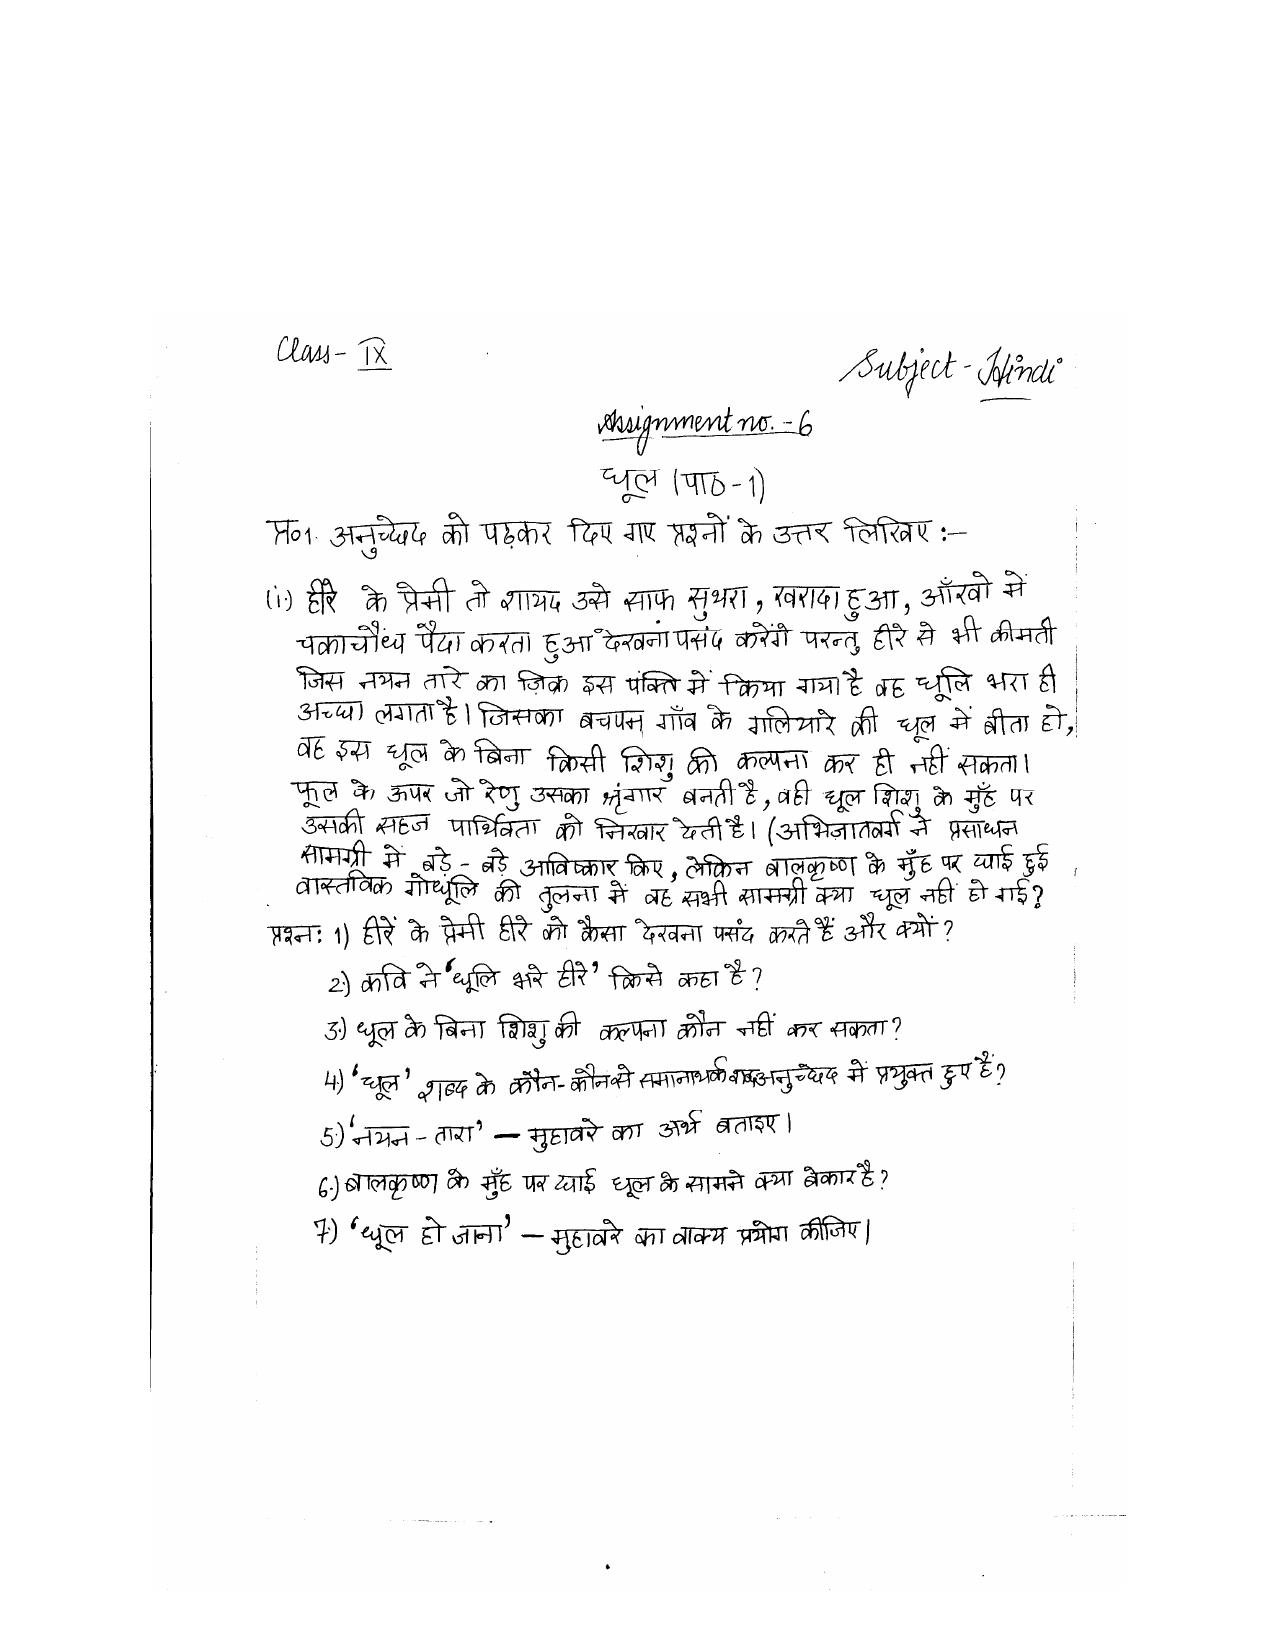 Class- IX
Subject - Hindi
Assignment no. - 6
धूल (पाठ - 1)
प्र०1. अनुच्छेद को पढ़कर दिए गए प्रश्नों के उत्तर लिखिए :-
(i.) हीरे के प्रेमी तो शायद उसे साफ सुथरा, खरादा हुआ, आँखो में
चकाचौंध पैदा करता हुआ देखना पसंद करेंगे परन्तु हीरे से भी कीमती
जिस नयन तारे का ज़िक्र इस पंक्ति में किया गया है वह धूलि भरा ही
अच्छा लगता है। जिसका बचपन गाँव के गलियारे की धूल में बीता हो,
वह इस धूल के बिना किसी शिशु की कल्पना कर ही नहीं सकता।
फूल के ऊपर जो रेणु उसका श्रृंगार बनती है, वही धूल शिशु के मुँह पर
उसकी सहज पार्थिवता को निखार देती है। (अभिजातवर्ग ने प्रसाधन
सामग्री में बड़े - बड़े आविष्कार किए, लेकिन बालकृष्ण के मुँह पर छाई हुई
वास्तविक गोधूलि की तुलना में वह सभी सामग्री क्या धूल नहीं हो गई?
प्रश्न: 1) हीरें के प्रेमी हीरे को कैसा देखना पसंद करते हैं और क्यों?
2.) कवि ने 'धूलि भरे हीरे' किसे कहा है?
3.) धूल के बिना शिशु की कल्पना कौन नहीं कर सकता?
4.) 'धूल' शब्द के कौन-कौन से समानार्थक शब्द अनुच्छेद में प्रयुक्त हुए हैं?
5.) 'नयन - तारा' – मुहावरे का अर्थ बताइए।
6.) बालकृष्ण के मुँह पर छाई धूल के सामने क्या बेकार है?
7.) 'धूल हो जाना' – मुहावरे का वाक्य प्रयोग कीजिए।